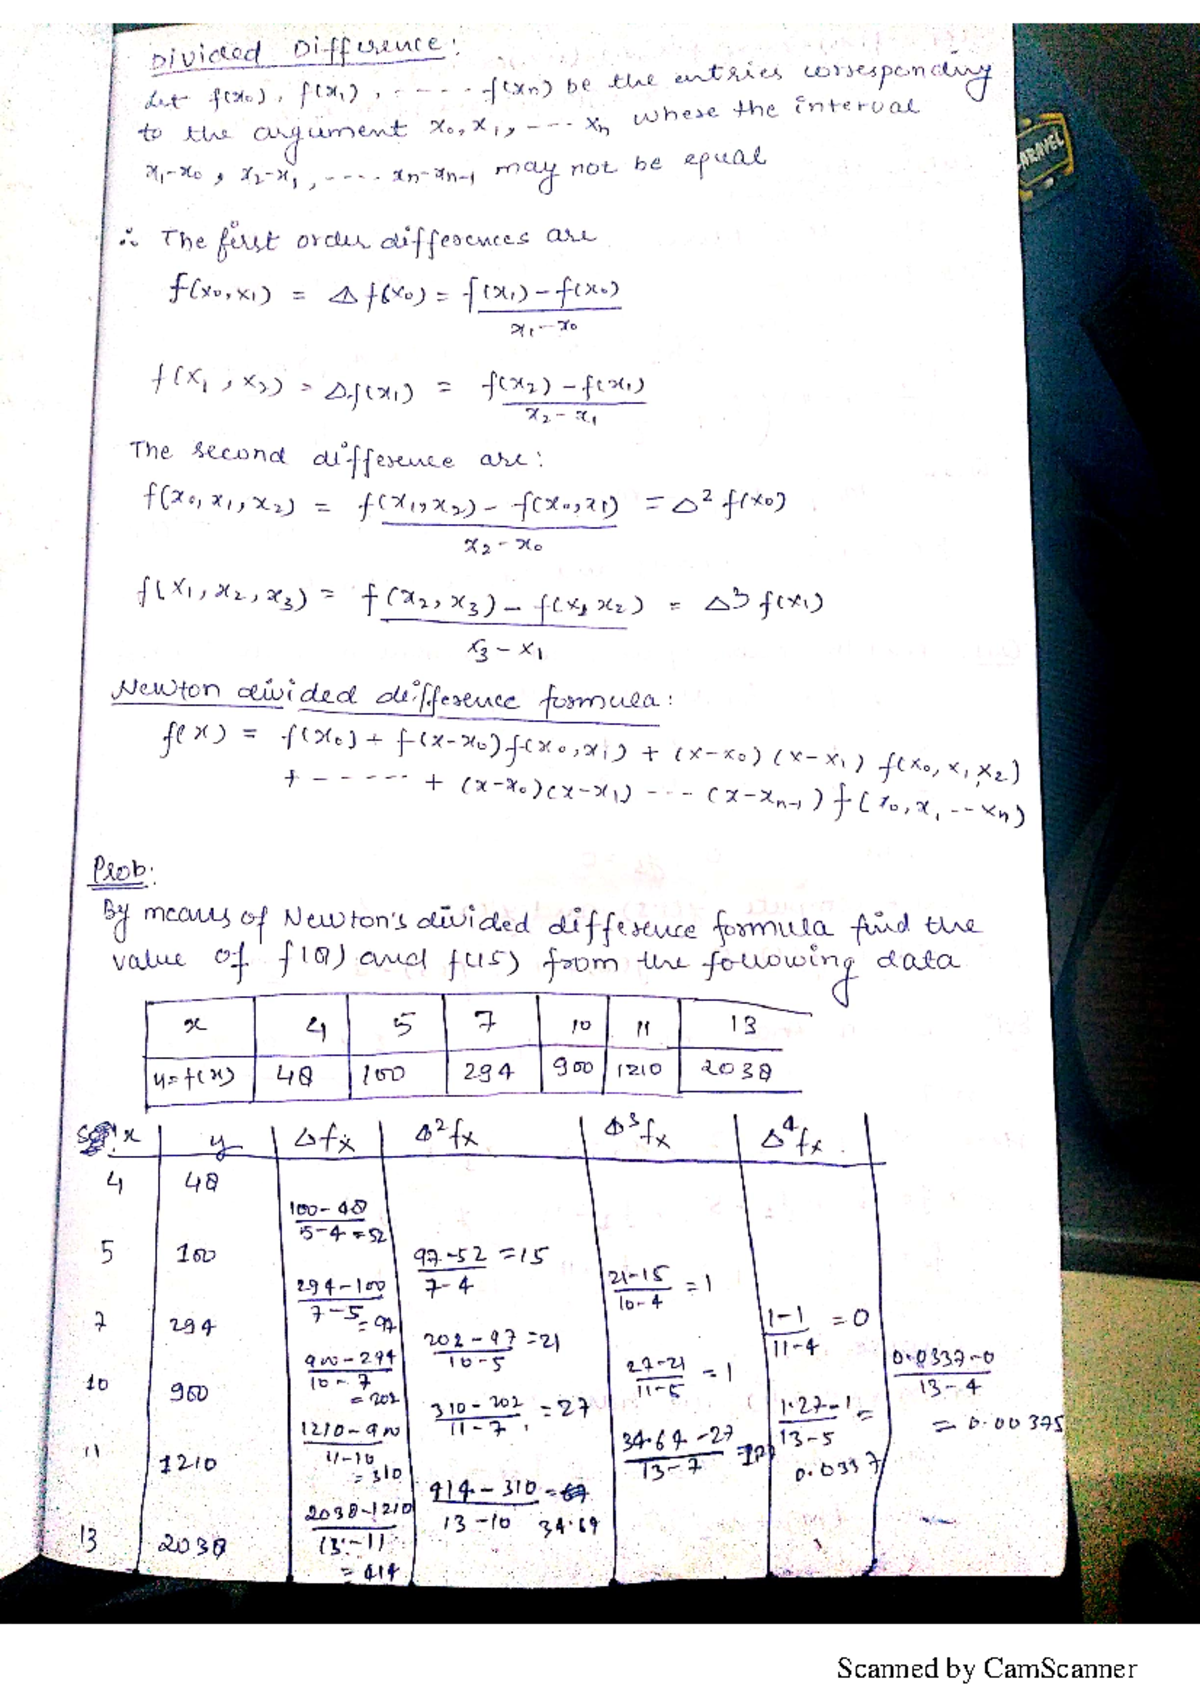 Divided Difference:
Let f(x0), f(x1), ----- f(xn) be the entries corresponding
to the argument x0, x1, --- xn where the interval
x1-x0, x2-x1, ---- xn-xn-1 may not be equal
∴ The first order differences are
f(x0,x1) = Δ f(x0) = f(x1) - f(x0)
x1 - x0
f(x1, x2) = Δf(x1) = f(x2) - f(x1)
x2 - x1
The second difference are:
f(x0, x1, x2) = f(x1,x2) - f(x0,x1) = Δ² f(x0)
x2 - x0
f(x1, x2, x3) = f(x2, x3) - f(x1, x2) = Δ³ f(x1)
x3 - x1
Newton divided difference formula:
f(x) = f(x0) + f(x-x0) f(x0, x1) + (x-x0) (x-x1) f(x0, x1, x2)
+ ----- + (x-x0)(x-x1) --- (x-xn-1) f(x0, x1 --- xn)
Prob:
By means of Newton's divided difference formula find the
value of f(8) and f(15) from the following data
x 4 5 7 10 11 13
y=f(x) 48 100 294 900 1210 2038
x y Δfx Δ²fx Δ³fx Δ⁴fx
4 48
100-48
5-4 =52
5 100 97-52 =15
7-4
294-100 21-15 =1
7-5 =97 10-4
7 294 202-97 =21 1-1 =0
10-5 11-4
900-294 27-21 =1 0.0337-0
10-7 =202 11-5 13-4
10 900 310-202 =27 1.27-1 = = 0.00375
11-7 13-5
1210-900 34.64-27 0.0337
11-10 =310 13-7
11 1210 414-310 =
13-10 34.69
2038-1210
13-11
13 2038 = 414
LARAVEL
Scanned by CamScanner